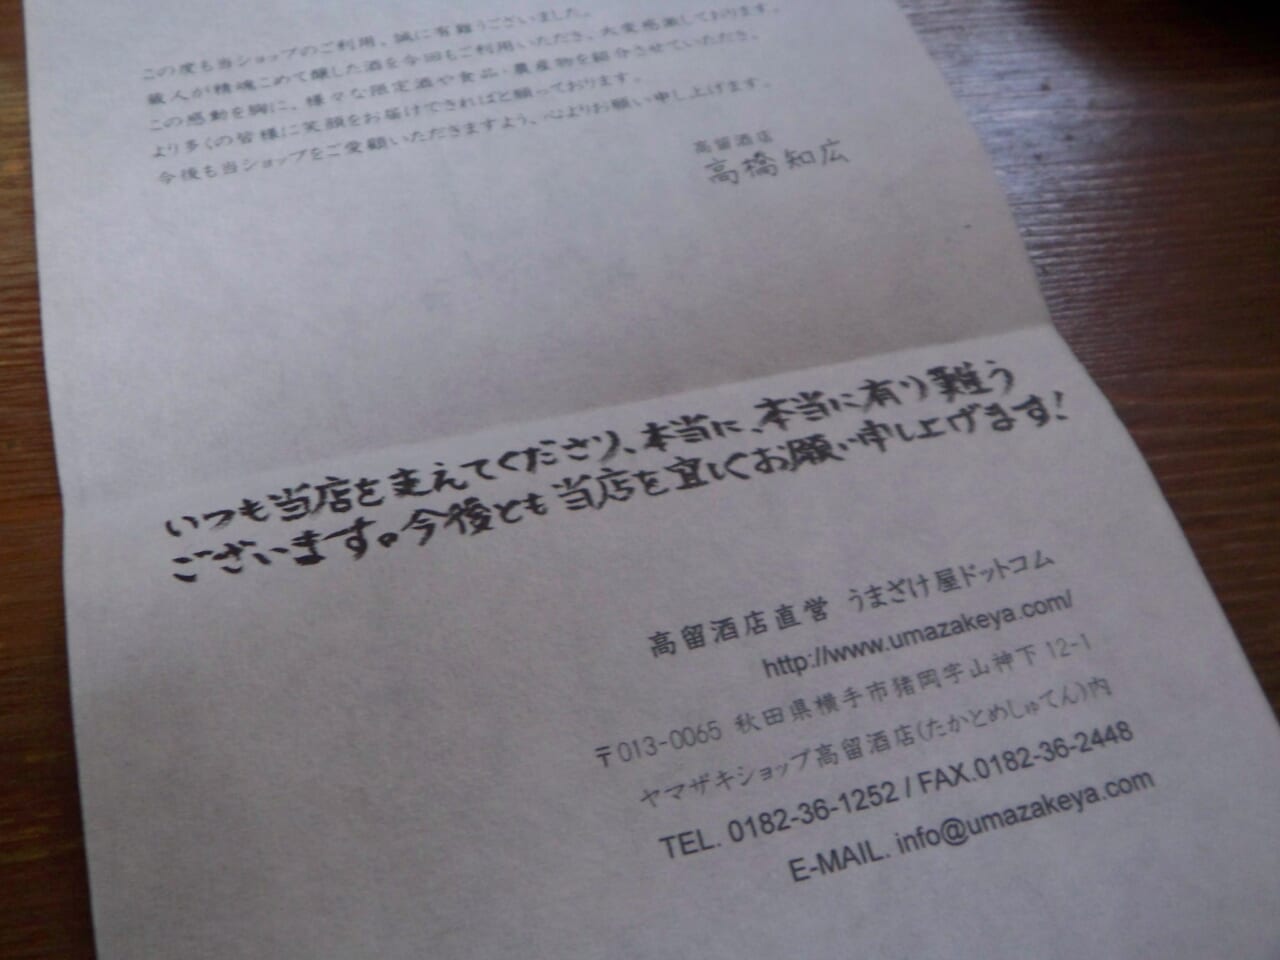 この度も当ショップのご利用、誠に有難うございました。
蔵人が精魂こめて醸した酒を今回もご利用いただき、大変感激しております。
この感動を胸に、様々な限定酒や食品・農産物を紹介させていただき、
より多くの皆様に笑顔をお届けできればと願っております。
今後も当ショップをご愛顧いただきますよう、心よりお願い申し上げます。
高留酒店
高橋知広
いつも当店を支えてくださり、本当に、本当に有り難う
ございます。今後とも当店を宜しくお願い申し上げます!
高留酒店直営 うまざけ屋ドットコム
http://www.umazakeya.com/
〒013-0065 秋田県横手市猪岡字山神下 12-1
ヤマザキショップ高留酒店(たかとめしゅてん)内
TEL. 0182-36-1252 / FAX.0182-36-2448
E-MAIL. info@umazakeya.com